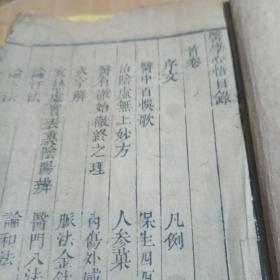 醫學心悟目錄
首卷
序文
凡例
醫中百悞歌
保生四
治陰虛無上妙方
人參菓
醫有徹始徹終之理
內傷外感
火字解
脉法金針
寒熱虛實表裏陰陽辨
醫門八法
論汗法
論和法